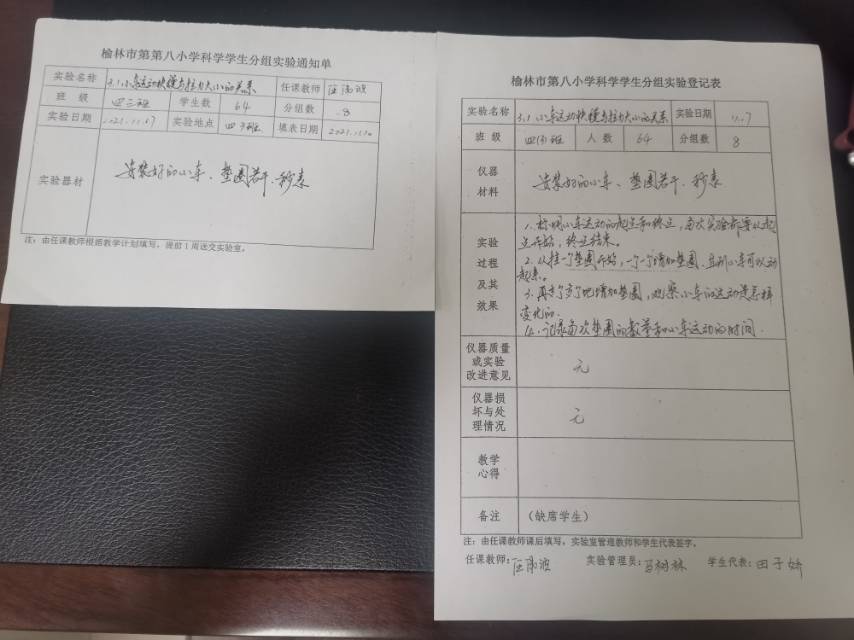 榆林市第第八小学科学学生分组实验通知单
实验名称 3.1小车运动快慢与拉力大小的关系 任课教师
班 级 四三班 学生数 64 分组数 8
实验日期 2021.11.17 实验地点 四3班 填表日期
实验器材 安装好的小车、垫圈若干、秒表
注：由任课教师根据教学计划填写，提前1周送交实验室。
榆林市第第八小学科学学生分组实验登记表
实验名称 3.1小车运动快慢与拉力大小的关系 实验日期
班 级 四(3)班 人 数 64 分组数 8
仪器
材料
安装好的小车、垫圈若干、秒表
实验
过程
及其
效果
1. 标明小车运动的起点和终点，每次实验都要从起
点开始，终点结束。
2. 从挂一个垫圈开始，一个一个增加垫圈，直到小车可以动
起来。
3. 再增加垫圈，观察小车的运动是怎样
变化的。
4. 记录每次垫圈的数量和小车运动的时间.
仪器质量
或实验
改进意见
无
仪器损
坏与处
理情况
无
教学
心得
备注 （缺席学生）
注：由任课教师课后填写，实验室管理教师和学生代表签字。
任课教师： 实验管理员： 学生代表：田子娇